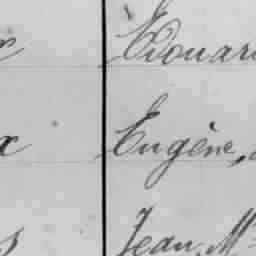 Edouar
x Eugène,
s Jean, M